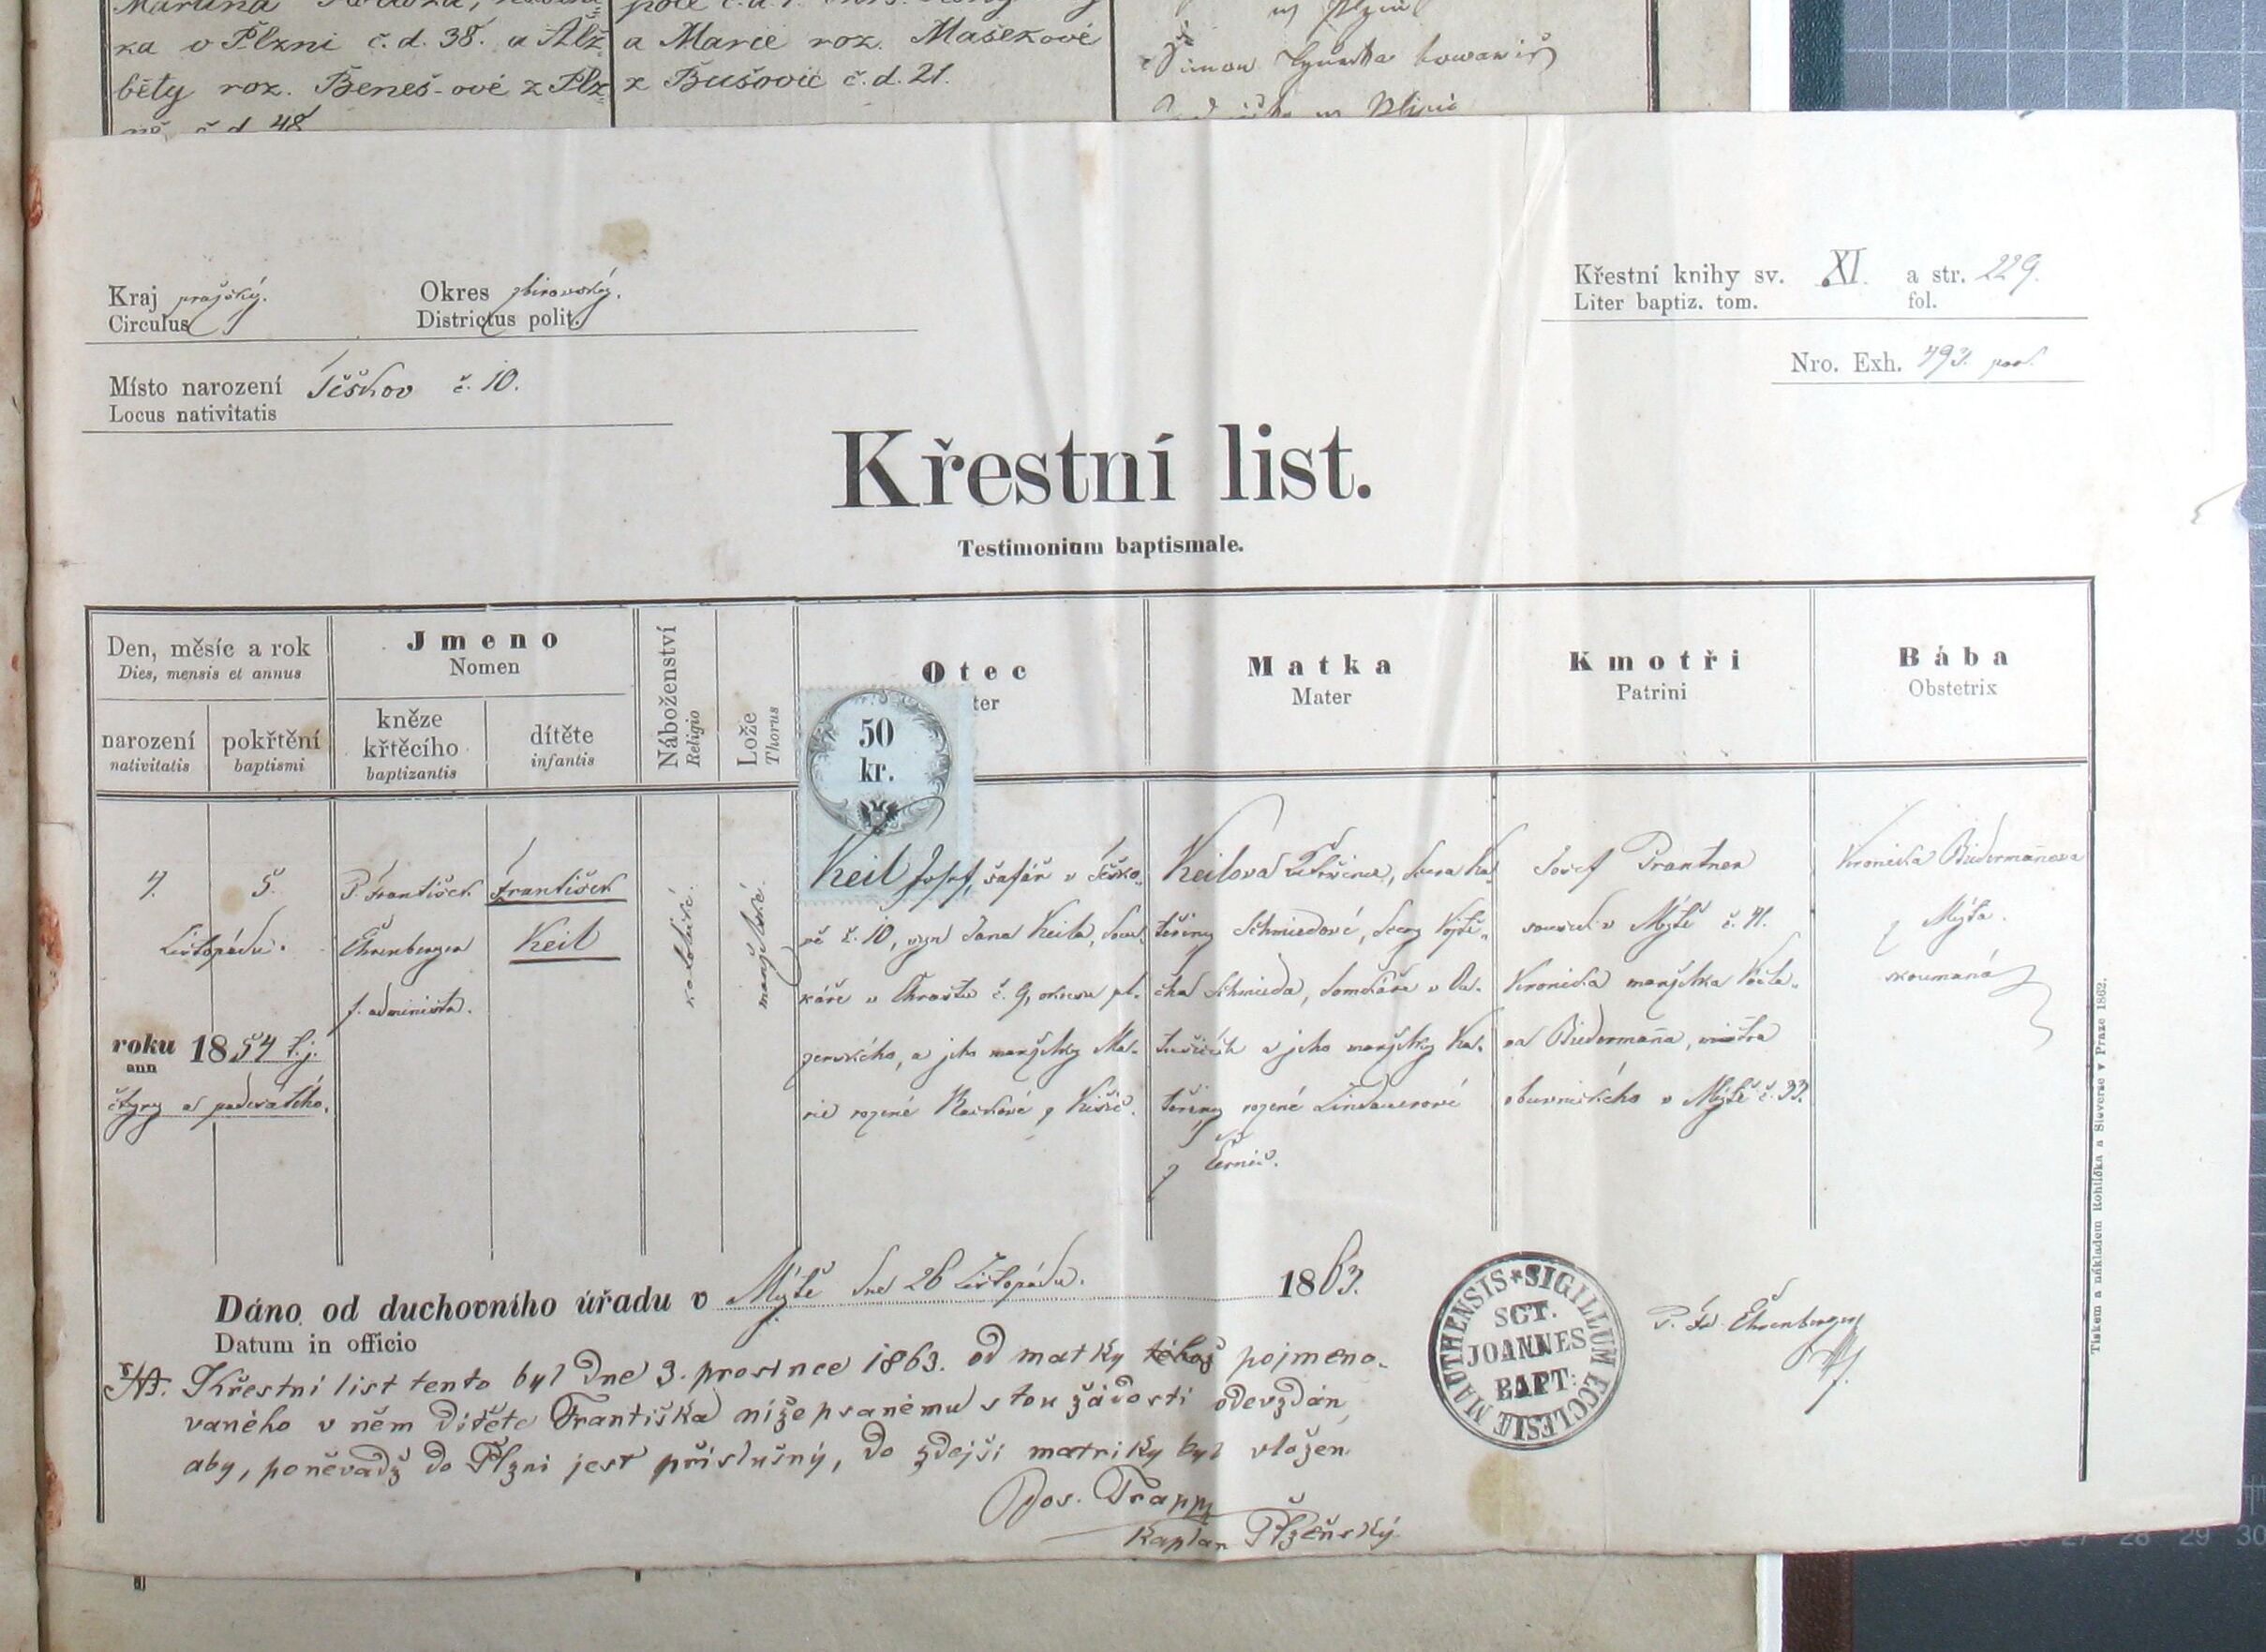 ka v Plzni č. d. 38. a Alž
běty roz. Beneš-ové z Plz
ně č. d. 48
a Marie roz. Mašekové
z Bušovic č. d. 21.
Kraj pražský.
Circulus
Okres zbirovský.
Districtus polit.
Křestní knihy sv. XI. a str. 229.
Liter baptiz. tom. fol.
Místo narození Těškov č. 10.
Locus nativitatis
Nro. Exh. 493.
Křestní list.
Testimonium baptismale.
Den, měsíc a rok
Dies, mensis et annus
narození
nativitatis
pokřtění
baptismi
Jmeno
Nomen
kněze
křtěcího
baptizantis
dítěte
infantis
Náboženství
Religio
Lože
Thorus
Otec
ter
50
kr.
Matka
Mater
Kmotři
Patrini
Bába
Obstetrix
4. 5.
Listopádu.
roku 1854 t. j.
ann
čtyry a padesátého.
P. František
Ehrenberger
f. administr.
František
Keil
katolické.
manželské.
Keil Josef, šafář v Těško-
vě č. 10, syn Jana Keila, dom-
káře v Chrástu č. 9, okresu pl-
zenského, a jeho manželky Ma-
rie rozené
Keilova Kateřina, dcera Ka-
teřiny Schmiedové, dcery Vojtě-
cha Schmieda, domkáře v
a jeho manželky Ka-
teřiny rozené Lindauerové
z Černic.
Josef Prantner
soused v Mýtě č. 41.
Veronika manželka Václa-
va Biedermaňa, mistra
obuvnického v Mýtě č. 33.
Veronika Biedermaňova
z Mýta.
zkoumaná
Dáno od duchovního úřadu v Mýtě dne 26 Listopádu. 1863.
Datum in officio
SIGILLUM ECCLESIÆ MAUTHENSIS
SCT.
JOANNES
BAPT:
P. Fr. Ehrenberger
NB. Křestní list tento byl dne 3. prosince 1863. od matky téhož pojmeno-
vaného v něm dítěte Františka níže psanému s tou žádostí odevzdán,
aby, poněvadž do Plzni jest příslušný, do zdejší matriky byl vložen.
Jos. Trapp
Kaplan Plzeňský
Tiskem a nákladem Rohlíčka a Sieverse v Praze 1862.
27 28 29 30